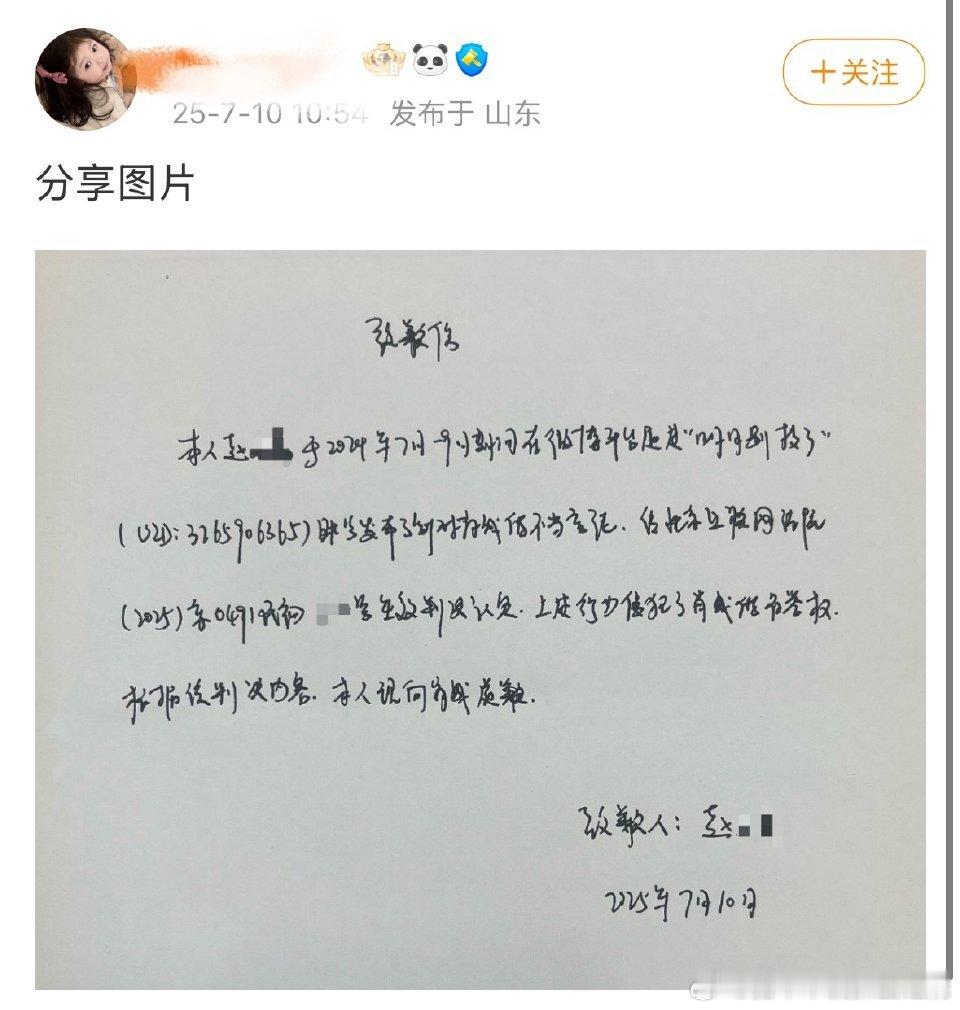 25-7-10 10:54 发布于 山东
+关注
分享图片
致歉信
本人赵 于2024年7月-9月期间在微博平台通过"
(UID: 3265906365) 账号发布了针对肖战的不当言论. 经北京互联网法院
(2025)京0491民初 号生效判决认定. 上述行为侵犯了肖战的名誉权.
根据该判决内容. 本人现向肖战致歉.
致歉人: 赵
2025年7月10日